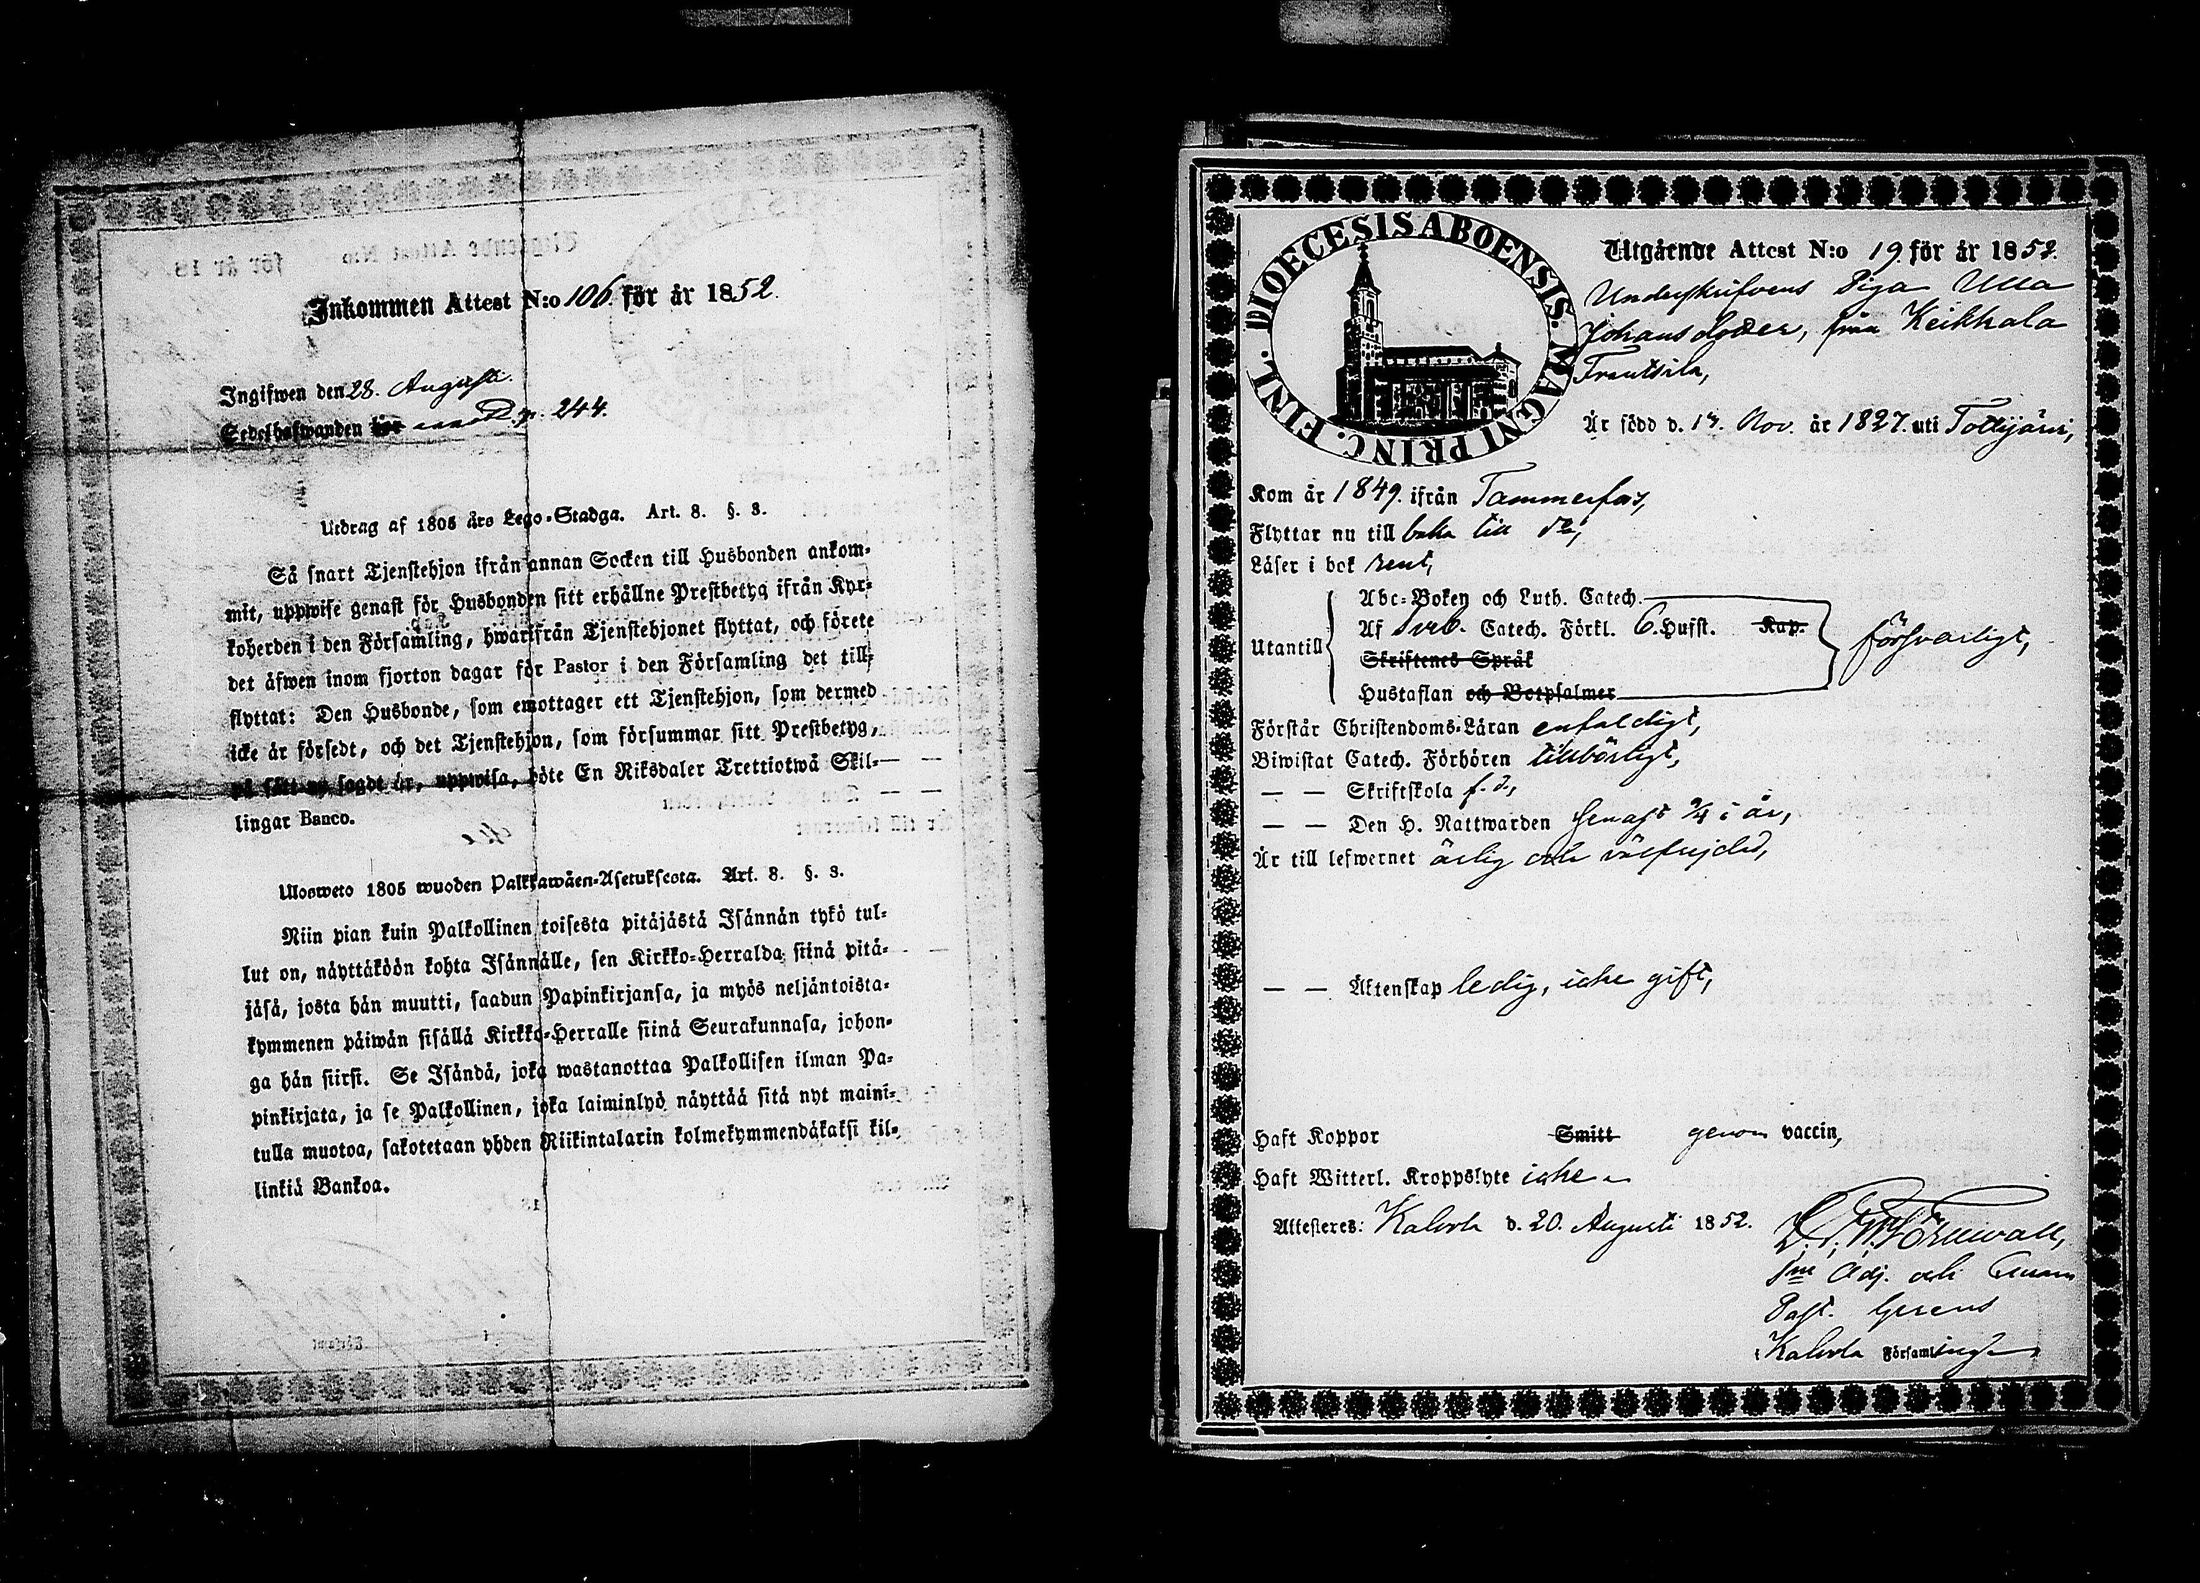 Inkommen Attest N:o 106. för år 1852.
Ingifwen den 28. Augusti.
Sedelhafwanden p. 244.
Utdrag af 1805 års Lego-Stadga. Art. 8. §. 3.
Så snart Tjenstehjon ifrån annan Socken till Husbonden ankom-
mit, uppwise genast för Husbonden sitt erhållne Prestbetyg ifrån Kyr-
koherden i den Församling, hwarifrån Tjenstehjonet flyttat, och förete
det äfwen inom fjorton dagar för Pastor i den Församling det till-
flyttat: Den Husbonde, som emottager ett Tjenstehjon, som dermed
icke är försedt, och det Tjenstehjon, som försummar sitt Prestbetyg,
på sätt nu sagdt är, uppwisa, böte En Riksdaler Trettiotwå Skil-
lingar Banco.
Ulosweto 1805 wuoden Palkkawäen-Asetuksesta. Art. 8. §. 3.
Niin pian kuin Palkollinen toisesta pitäjästä Isännän tykö tul-
lut on, näyttäköön kohta Isännälle, sen Kirkko-Herralda siinä pitä-
jäsä, josta hän muutti, saadun Papinkirjansa, ja myös neljäntoista-
kymmenen päiwän sisällä Kirkko-Herralle siinä Seurakunnasa, johon-
ga hän siirsi. Se Isändä, joka wastanottaa Palkollisen ilman Pa-
pinkirjata, ja se Palkollinen, joka laiminlyö näyttää sitä nyt maini-
tulla muotoa, sakotetaan yhden Riikintalarin kolmekymmendäkaksi kil-
linkiä Bankoa.
DIOECESIS ABOENSIS. MAGNI PRINC. FINL.
Utgående Attest N:o 19. för år 1852.
Underskrifvens Piga Ulla
Johansdotter, från Keikkala
Frantsila,
Är född d. 17. Nov. år 1827. uti Tottijärvi,
Kom år 1849. ifrån Tammerfors,
Flyttar nu till baka till do,
Läser i bok rent,
Utantill
Abc-Boken och Luth. Catech.
Af Sveb. Catech. Förkl. 6. Hufst. Kap.
Skriftenes Språk
Hustaflan och Botpsalmer
försvarligt,
Förstår Christendoms-Läran enfaldigt,
Biwistat Catech. Förhören tillbörligt,
— — Skriftskola f. d.,
— — Den H. Nattwarden senast 9/4 i år,
Är till lefwernet ärlig och välfrejdad,
— — Äktenskap ledig, icke gift,
Haft Koppor Smitt genom vaccin,
Haft Witterl. Kroppslyte icke
Attesteres: Kalvola d. 20. Augusti 1852.
Adj. och
Past. Gerens
i Kalvola Församling